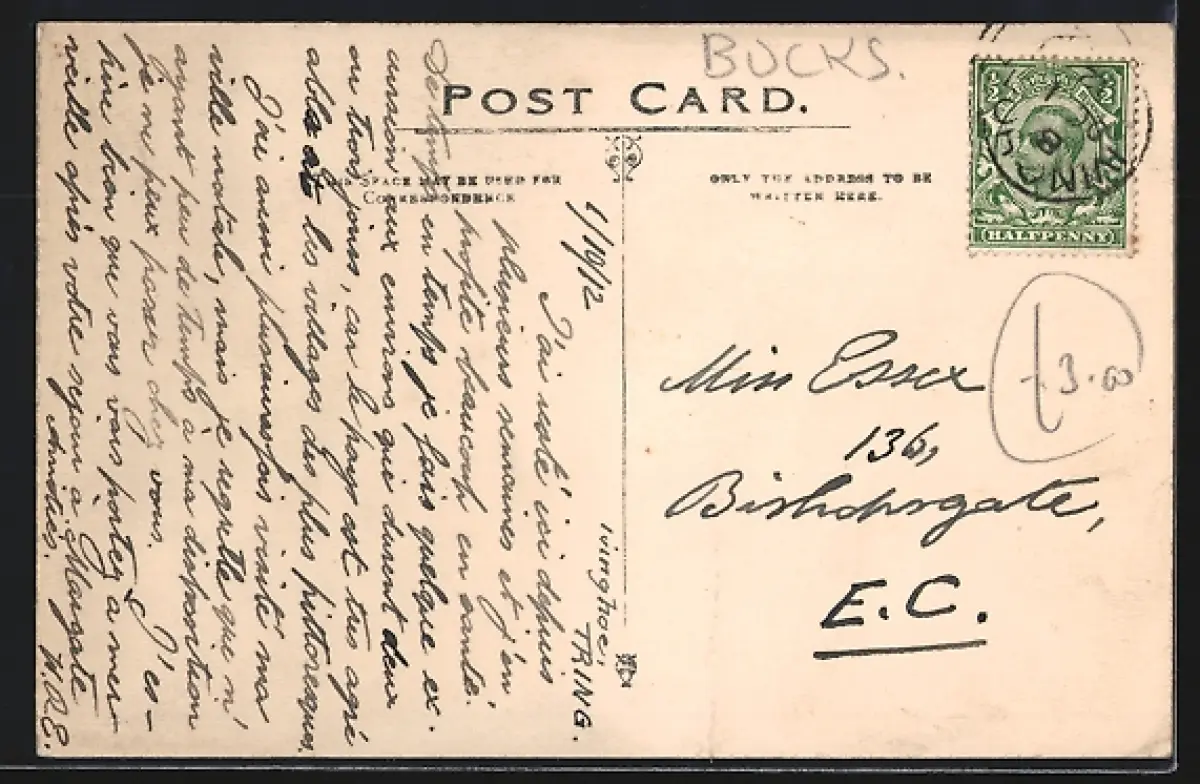 BUCKS.
POST CARD.
THIS SPACE MAY BE USED FOR
CORRESPONDENCE
ONLY THE ADDRESS TO BE
WRITTEN HERE.
HALFPENNY
Ivinghoe,
TRING.
6/10/12
J'ai resté ici depuis
plusieurs semaines et j'en
profite beaucoup en santé.
De temps en temps je fais quelque ex-
cursion aux environs qui durent deux
ou trois jours, car le pays est très agré
able et les villages des plus pittoresques.
J'ai aussi plusieurs fois visité ma
ville natale, mais je regrette que n'
ayant peu de temps à ma disposition
je ne peux passer chez vous. J'es-
hère bien que vous vous portez à mer-
veille après votre séjour à Margate
Amitiés. W.R.E.
Miss Essex
136,
Bishopsgate,
E.C.
£3.00